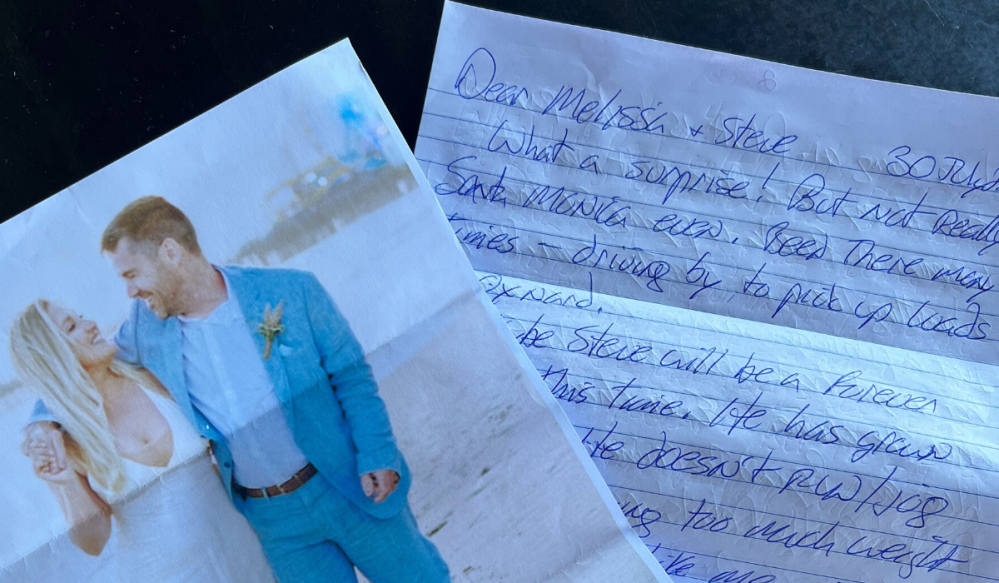 Dear Melissa + Steve
30 July
What a surprise! But not really
Santa Monica even. Been There many
times - driving by to pick up loads
Oxnard.
be Steve will be a Forever
This time. He has grown
He doesn't run/jog
ing too much weight
like me